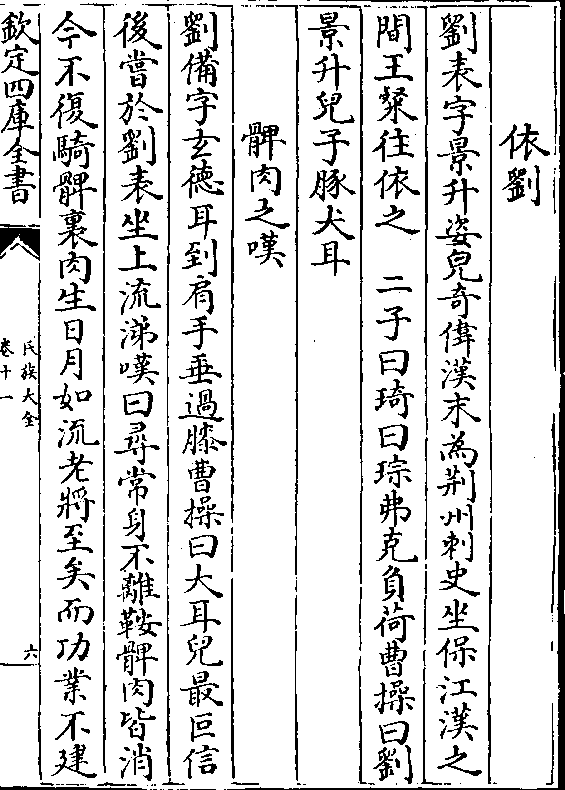 依劉
劉表字景升姿皃奇偉漢末為荆州刺史坐保江漢之
間王粲往依之 二子曰琦曰琮弗克負荷曹操曰劉
景升兒子豚犬耳
髀肉之嘆
劉備字玄德耳到肩手垂過膝曹操曰大耳兒最叵信
後嘗於劉表坐上流涕嘆曰尋常身不離鞍髀肉皆消
今不復騎髀裏肉生日月如流老將至矣而功業不建
欽定四庫全書
氏族大全
卷十一
六